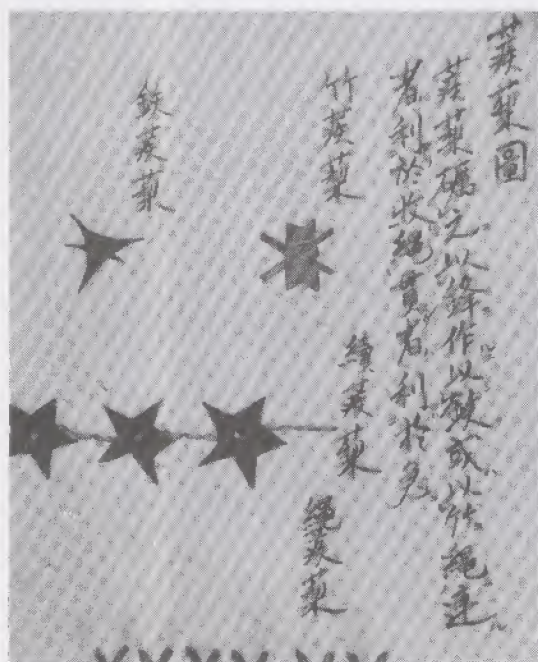 蒺藜圖
蒺藜礪之以鋒作以或以鉄繩連
者利於收繩貫者利於多
竹蒺藜
續蒺藜
繩蒺藜
鉄蒺藜